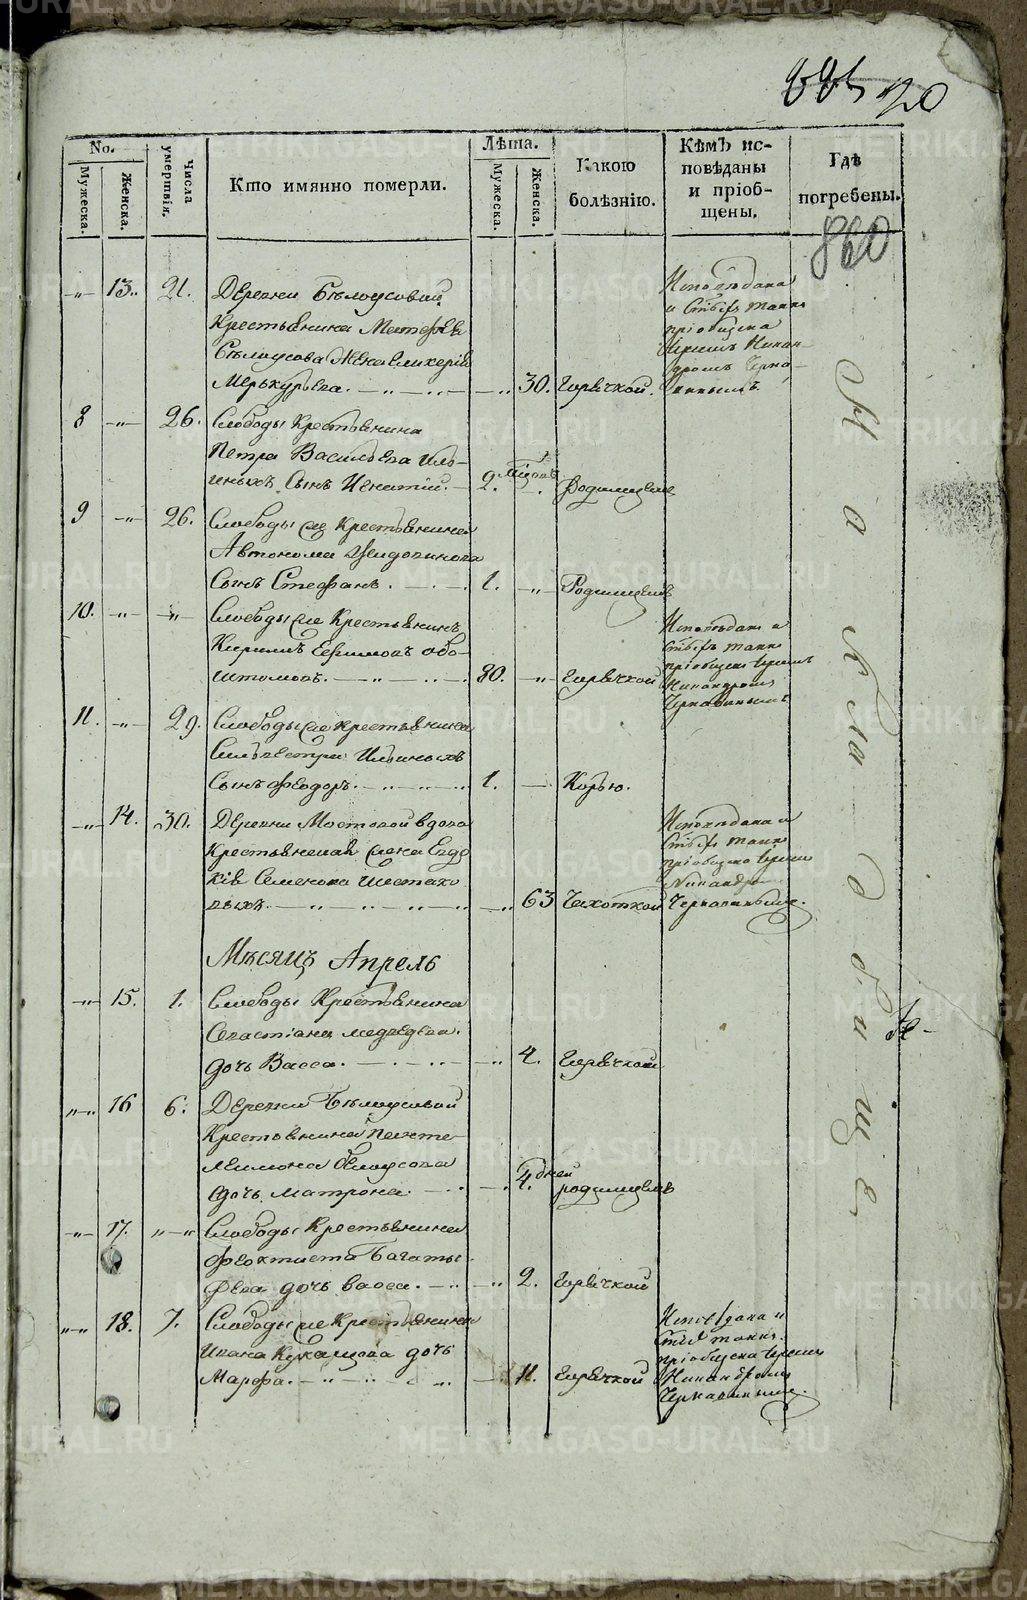 20
No.
Мужеска.
Женска.
Числа умертвія.
Кто имянно померли.
Лѣта.
Мужеска.
Женска.
Какою болѣзнію.
Кѣмъ ис-
повѣданы
и пріоб-
щены.
Гдѣ
погребены.
860
На кладбище
13. 21. Деревни Бѣлоусовой
Крестьянина Матфѣя
Бѣлоусова Жена Гликерія
Меркурьева. 30. Горячкой.
Исповѣдана
и Стыхъ таинъ
пріобщена
Іереемъ Никан-
дромъ Черна-
виннымъ
8 26. Слободы Крестьянина
Петра Васильева Иль-
иныхъ Сынъ Игнатій. 2. мѣсяцъ Родимцемъ
9 26. Слободы сей Крестьянина
Автонома
Сынъ Стефанъ. 1. Родимцемъ
10. Слободы сей Крестьянинъ
Кирилъ Ефимовъ
80. Горячкой
Исповѣданъ и
Стыхъ таинъ
пріобщенъ Іереемъ
Никандромъ
Чернавинымъ
11. 29. Слободы сей Крестьянина
Сильвестра Ильиныхъ
Сынъ Феодоръ. 1. Корью.
14. 30. Деревни Мостовой вдова
Крестьянская жена Евдо-
кія Семенова Шестако-
выхъ. 63 Чахоткой
Исповѣдана и
Стыхъ таинъ
пріобщена Іереемъ
Никандро
Чернавинымъ.
Мѣсяцъ Апрель
15. 1. Слободы Крестьянина
Севастіана Медведева
дочь Васса. 4. Горячкой
16 6. Деревни Бѣлоусовой
Крестьянина Панте-
леимона Белоусова
дочь Матрона 4. дней родимцемъ
17. Слободы Крестьянина
Феоктиста Багаты-
рева дочь Васса. 2. Горячкой
18. 7. Слободы сей Крестьянина
Ивана дочь
Марфа. 11. Горячкой
Исповѣдана и
Стыхъ таинъ
пріобщена Іереемъ
Никандромъ
Чернавинымъ.
METRIKI.GASO-URAL.RU